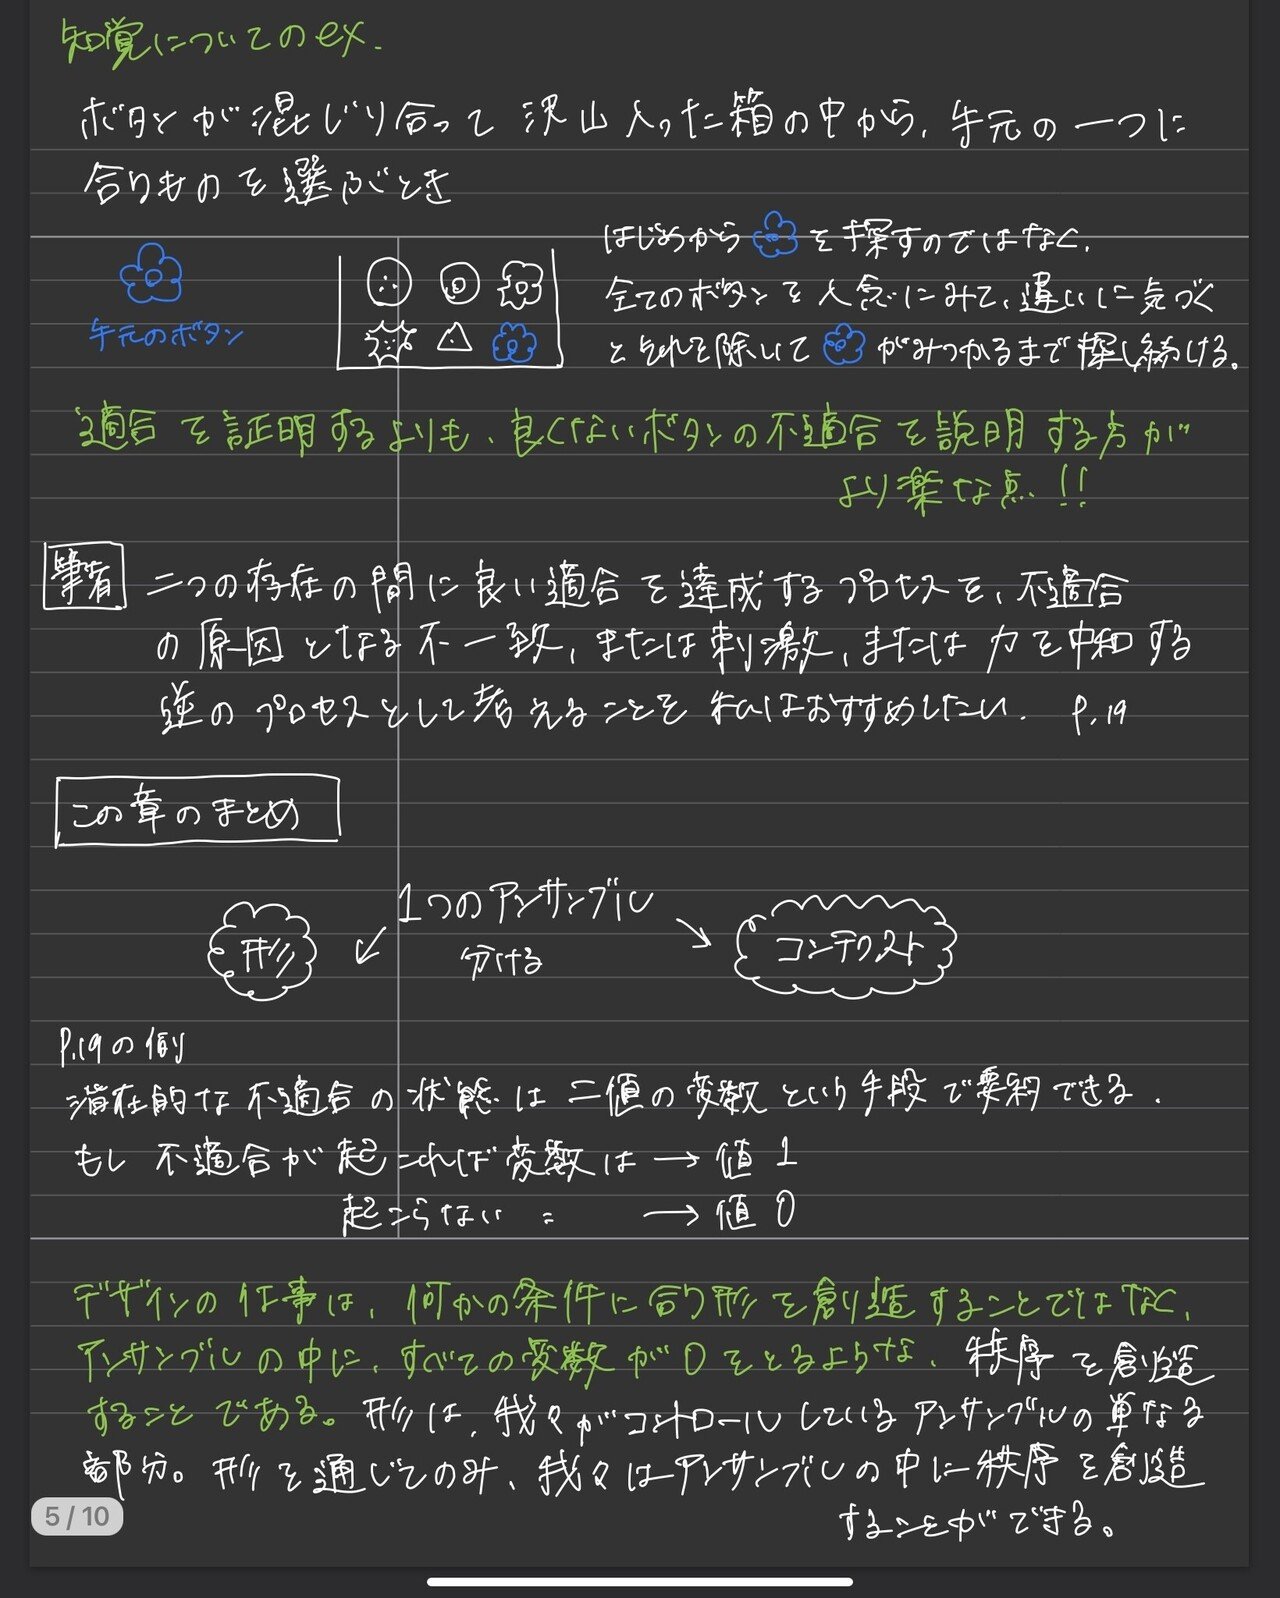 知覚についてのex.
ボタンが混じり合って沢山入った箱の中から、手元の一つに
合うものを選ぶとき
はじめから を探すのではなく、
全てのボタンを入念にみて、違いに気づく
とそれを除いて がみつかるまで探し続ける。
手元のボタン
適合を証明するよりも、良くないボタンの不適合を説明する方が
より楽な点!!
筆者 二つの存在の間に良い適合を達成するプロセスを、不適合
の原因となる不一致、または刺激、または力を中和する
逆のプロセスとして考えることを私はおすすめしたい. P.19
この章のまとめ
1つのアンサンブル
形 ↙ 分ける ↘ コンテクスト
P.19の例
潜在的な不適合の状態は二値の変数という手段で要約できる.
もし不適合が起これば変数は → 値1
起こらない 〃 → 値0
デザインの仕事は、何かの条件に合う形を創造することではなく、
アンサンブルの中に、すべての変数が0をとるような、秩序を創造
することである。形は、我々がコントロールしているアンサンブルの単なる
部分。形を通じてのみ、我々はアンサンブルの中に秩序を創造
することができる。
5 / 10